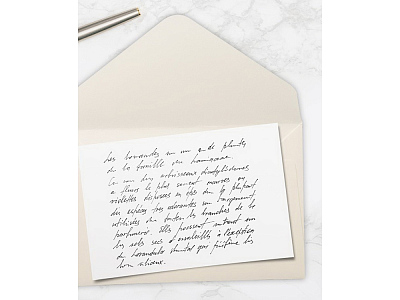 Les lavandes un de plantes
de la famille des
Ce sont des arbrisseaux dicotylédones
a fleurs le plus souvent mauves ou
violettes disposées en épis dont la plupart
des espèces très odorantes sont largement
utilisées dans toutes les branches de la
parfumerie. Elles poussent surtout sur
les sols secs ensoleillés à l'exception
de lavandula qui préfère les